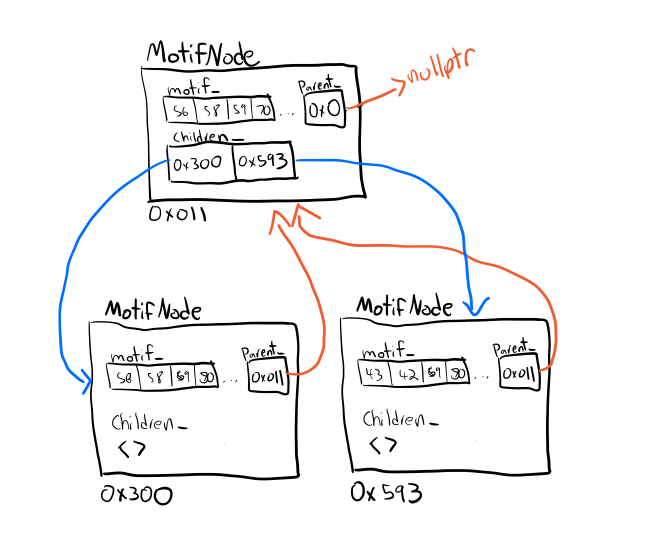 MotifNode
motif_
56 58 59 70 ...
Parent_
0x0
nullptr
children_
0x300 0x593
0x011
MotifNode
motif_
58 58 69 30 ...
Parent_
0x011
Children_
<>
0x300
MotifNode
motif_
43 42 69 30 ...
Parent_
0x011
Children_
<>
0x593